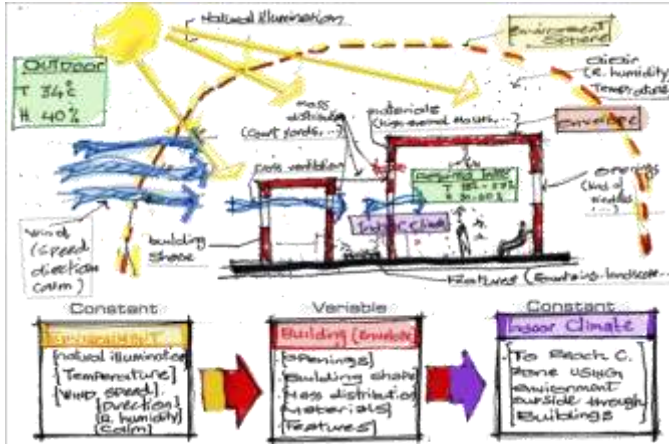 Natural illumination
environment
Sphere
OUTDOOR
T 34°C
H 40%
(R. humidity)
Temperature
mass
distribution
(Court yards, ...)
materials
envelope
cross ventilation
T
Indoor Climate
openings
(kind of
wind
(Speed
direction
Calm)
building
Shape
Features (Fountains, landscape...
Constant
Variable
Constant
ENVIRONMENT
[natural illumination
[Temperature]
[Wind speed]
[Direction]
[R. humidity]
[Calm]
Building (Envelope
[openings]
[Building shape
[Mass distribution
[Materials]
[Features]
Indoor Climate
[To Reach C.
zone USING
environment
outside through
Buildings]